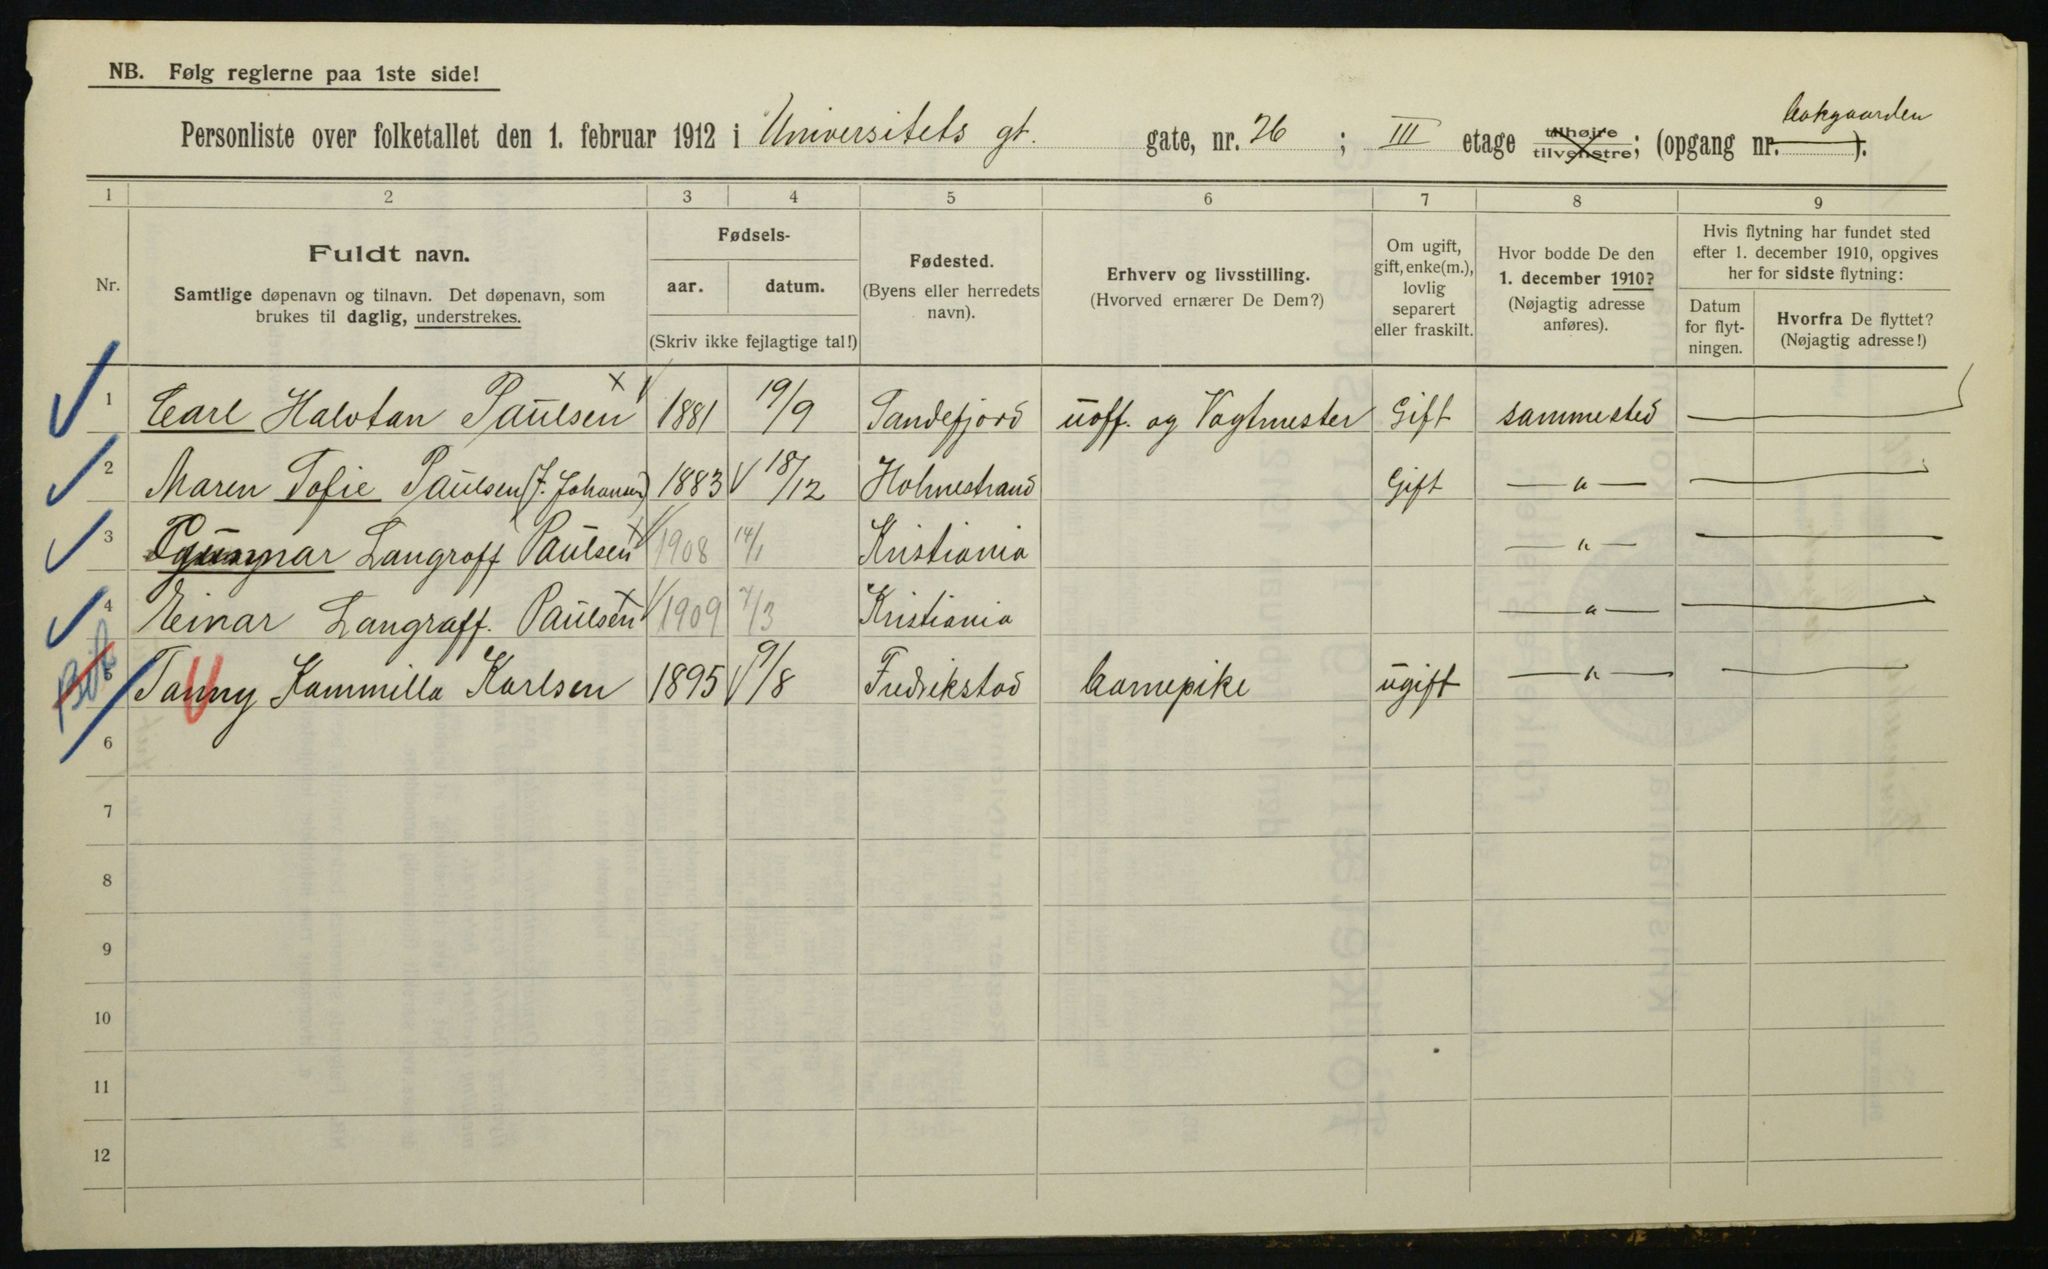 NB. Følg reglerne paa 1ste side!
Bakgaarden
Personliste over folketallet den 1. februar 1912 i Universitets gt. gate, nr. 26 ; III etage tilhøire tilvenstre; (opgang nr. ).
1 2 3 4 5 6 7 8 9
Nr.
Fuldt navn.
Samtlige døpenavn og tilnavn. Det døpenavn, som
brukes til daglig, understrekes.
Fødsels-
aar. datum.
(Skriv ikke fejlagtige tal!)
Fødested.
(Byens eller herredets
navn).
Erhverv og livsstilling.
(Hvorved ernærer De Dem?)
Om ugift,
gift, enke(m.),
lovlig
separert
eller fraskilt.
Hvor bodde De den
1. december 1910?
(Nøjagtig adresse
anføres).
Hvis flytning har fundet sted
efter 1. december 1910, opgives
her for sidste flytning:
Datum
for flyt-
ningen.
Hvorfra De flyttet?
(Nøjagtig adresse!)
1 Carl Halvtan Paulsen 1881 19/9 Sandefjord uoff. og Vagtmester Gift sammested
2 Maren Sofie Paulsen (f. Johansen) 1883 18/12 Holmestrand Gift — " —
3 Gunnar Langraff Paulsen 1908 14/1 Kristiania — " —
4 Einar Langraff. Paulsen 1909 7/3 Kristiania — " —
5 Fanny Kammilla Karlsen 1895 9/8 Fredrikstad Barnepike ugift — " —
6
7
8
9
10
11
12